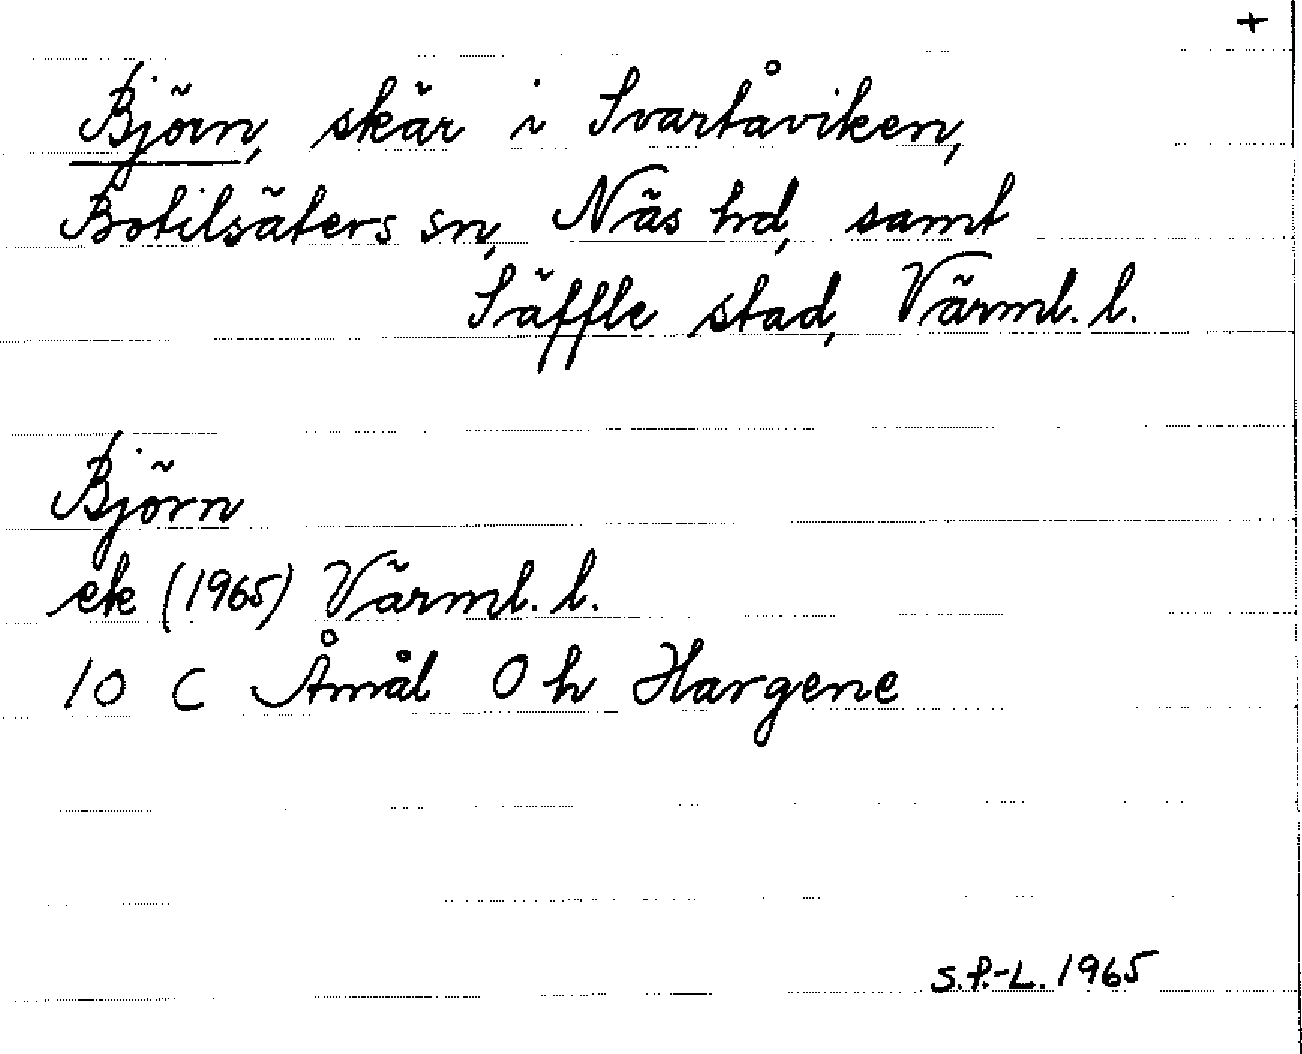 +
Björn, skär i Svartåviken,
Botilsäters sn, Näs hd, samt
Säffle stad, Värml. l.
Björn
ek (1965) Värml. l.
10 C Åmål O h Hargene
S.P.-L. 1965